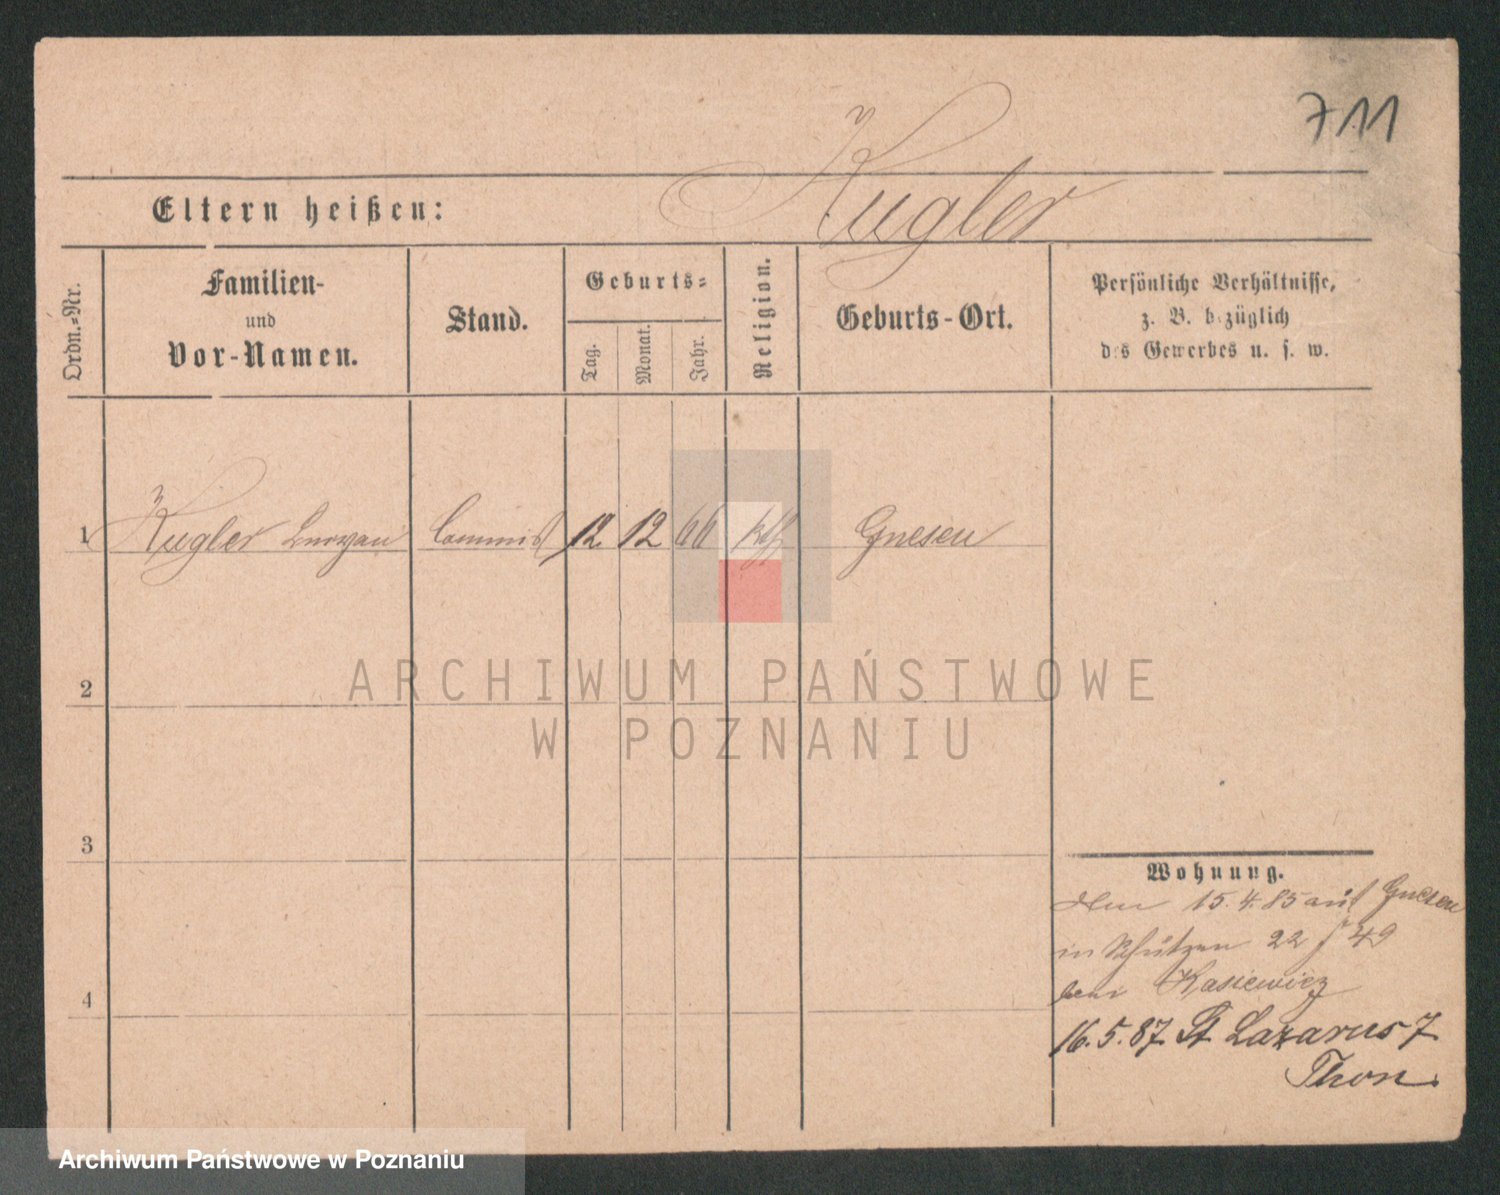 711
Kugler
Eltern heißen:
Ordn.-Nr.
Familien-
und
Vor-Namen.
Stand.
Geburts-
Tag.
Monat.
Jahr.
Religion.
Geburts-Ort.
Persönliche Verhältnisse,
z. B. bezüglich
des Gewerbes u. s. w.
1 Kugler Commis 12 12 66 kth Gnesen
2
3
4
Wohnung.
15.4.85 aus Gnesen
in Schützen 22 49
bei Kasiewicz
16.5.87. St Lazarus 7
Thon.
ARCHIWUM PAŃSTWOWE
W POZNANIU
Archiwum Państwowe w Poznaniu